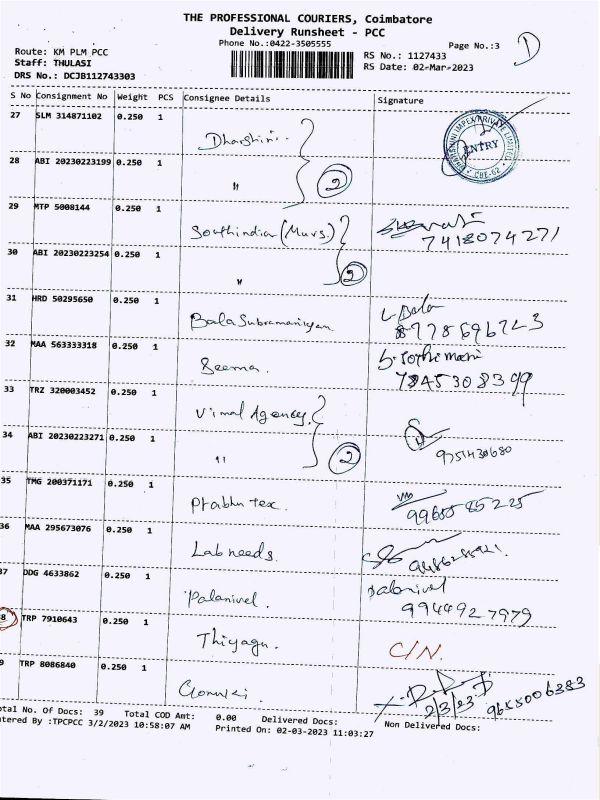 THE PROFESSIONAL COURIERS, Coimbatore
Delivery Runsheet - PCC
Phone No.:0422-3505555
Page No.:3
D
Route: KM PLM PCC
Staff: THULASI
DRS No.: DCJB112743303
RS No.: 1127433
RS Date: 02-Mar-2023
S No Consignment No Weight PCS Consignee Details Signature
27 SLM 314871102 0.250 1 Dharshini
ENTRY
CBE-62
28 ABI 20230223199 0.250 1 " 2
29 MTP 5008144 0.250 1 Southindia (Murs.) 7418074271
30 ABI 20230223254 0.250 1 " 2
31 HRD 50295650 0.250 1 Bala Subramaniyan Bala
8778696723
32 MAA 563333318 0.250 1 Seema. S. Jothi mani
78453 08399
33 TRZ 320003452 0.250 1 Vimal Agency
34 ABI 20230223271 0.250 1 " 2 9751430680
35 TMG 200371171 0.250 1 Prabhu tex. 99655 85225
36 MAA 295673076 0.250 1 Lab needs.
37 DDG 4633862 0.250 1 Palanivel. Palanivel
9944927979
38 TRP 7910643 0.250 1 Thiyagu. C/N.
39 TRP 8086840 0.250 1
2/3/23 9655006383
Total No. Of Docs: 39 Total COD Amt: 0.00 Delivered Docs: Non Delivered Docs:
ntered By :TPCPCC 3/2/2023 10:58:07 AM Printed On: 02-03-2023 11:03:27